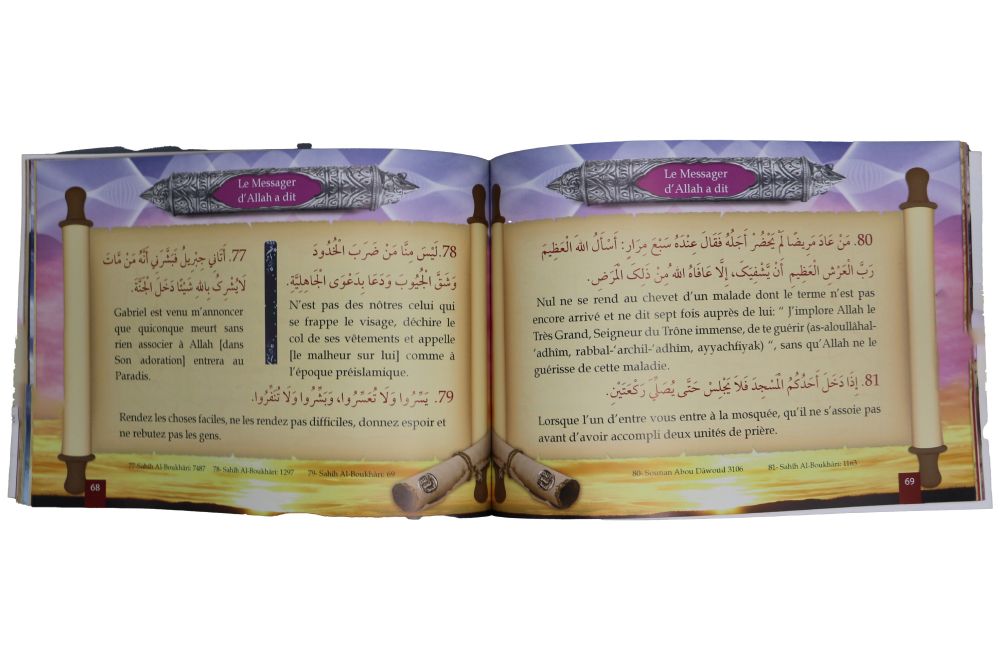 Le Messager
d'Allah a dit
77. أَتَانِي جِبْرِيلُ فَبَشَّرَنِي أَنَّهُ مَنْ مَاتَ
لَايُشْرِكُ بِاللهِ شَيْئًا دَخَلَ الْجَنَّةَ.
Gabriel est venu m'annoncer
que quiconque meurt sans
rien associer à Allah [dans
Son adoration] entrera au
Paradis.
78. لَيْسَ مِنَّا مَنْ ضَرَبَ الْخُدُودَ
وَشَقَّ الْجُيُوبَ وَدَعَا بِدَعْوَى الْجَاهِلِيَّةِ.
N'est pas des nôtres celui qui
se frappe le visage, déchire le
col de ses vêtements et appelle
[le malheur sur lui] comme à
l'époque préislamique.
79. يَسِّرُوا وَلَا تُعَسِّرُوا، وَبَشِّرُوا وَلَا تُنَفِّرُوا.
Rendez les choses faciles, ne les rendez pas difficiles, donnez espoir et
ne rebutez pas les gens.
77-Sahîh Al-Boukhâri: 7487 78- Sahîh Al-Boukhâri: 1297 79- Sahîh Al-Boukhâri: 69
68
Le Messager
d'Allah a dit
80. مَنْ عَادَ مَرِيضًا لَمْ يَحْضُرْ أَجَلُهُ فَقَالَ عِنْدَهُ سَبْعَ مِرَارٍ: أَسْأَلُ اللهَ الْعَظِيمَ
رَبَّ الْعَرْشِ الْعَظِيمِ أَنْ يَشْفِيَكَ، إِلَّا عَافَاهُ اللهُ مِنْ ذَلِكَ الْمَرَضِ.
Nul ne se rend au chevet d'un malade dont le terme n'est pas
encore arrivé et ne dit sept fois auprès de lui: “ J'implore Allah le
Très Grand, Seigneur du Trône immense, de te guérir (as-aloullâhal-
‘adhîm, rabbal-‘archil-‘adhîm, ayyachfiyak) “, sans qu'Allah ne le
guérisse de cette maladie.
81. إِذَا دَخَلَ أَحَدُكُمُ الْمَسْجِدَ فَلَا يَجْلِسْ حَتَّى يُصَلِّيَ رَكْعَتَيْنِ.
Lorsque l'un d'entre vous entre à la mosquée, qu'il ne s'assoie pas
avant d'avoir accompli deux unités de prière.
80- Sounan Abou Dâwoud 3106 81- Sahîh Al-Boukhâri: 1163
69